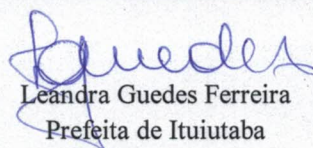 Lguedes
Leandra Guedes Ferreira
Prefeita de Ituiutaba